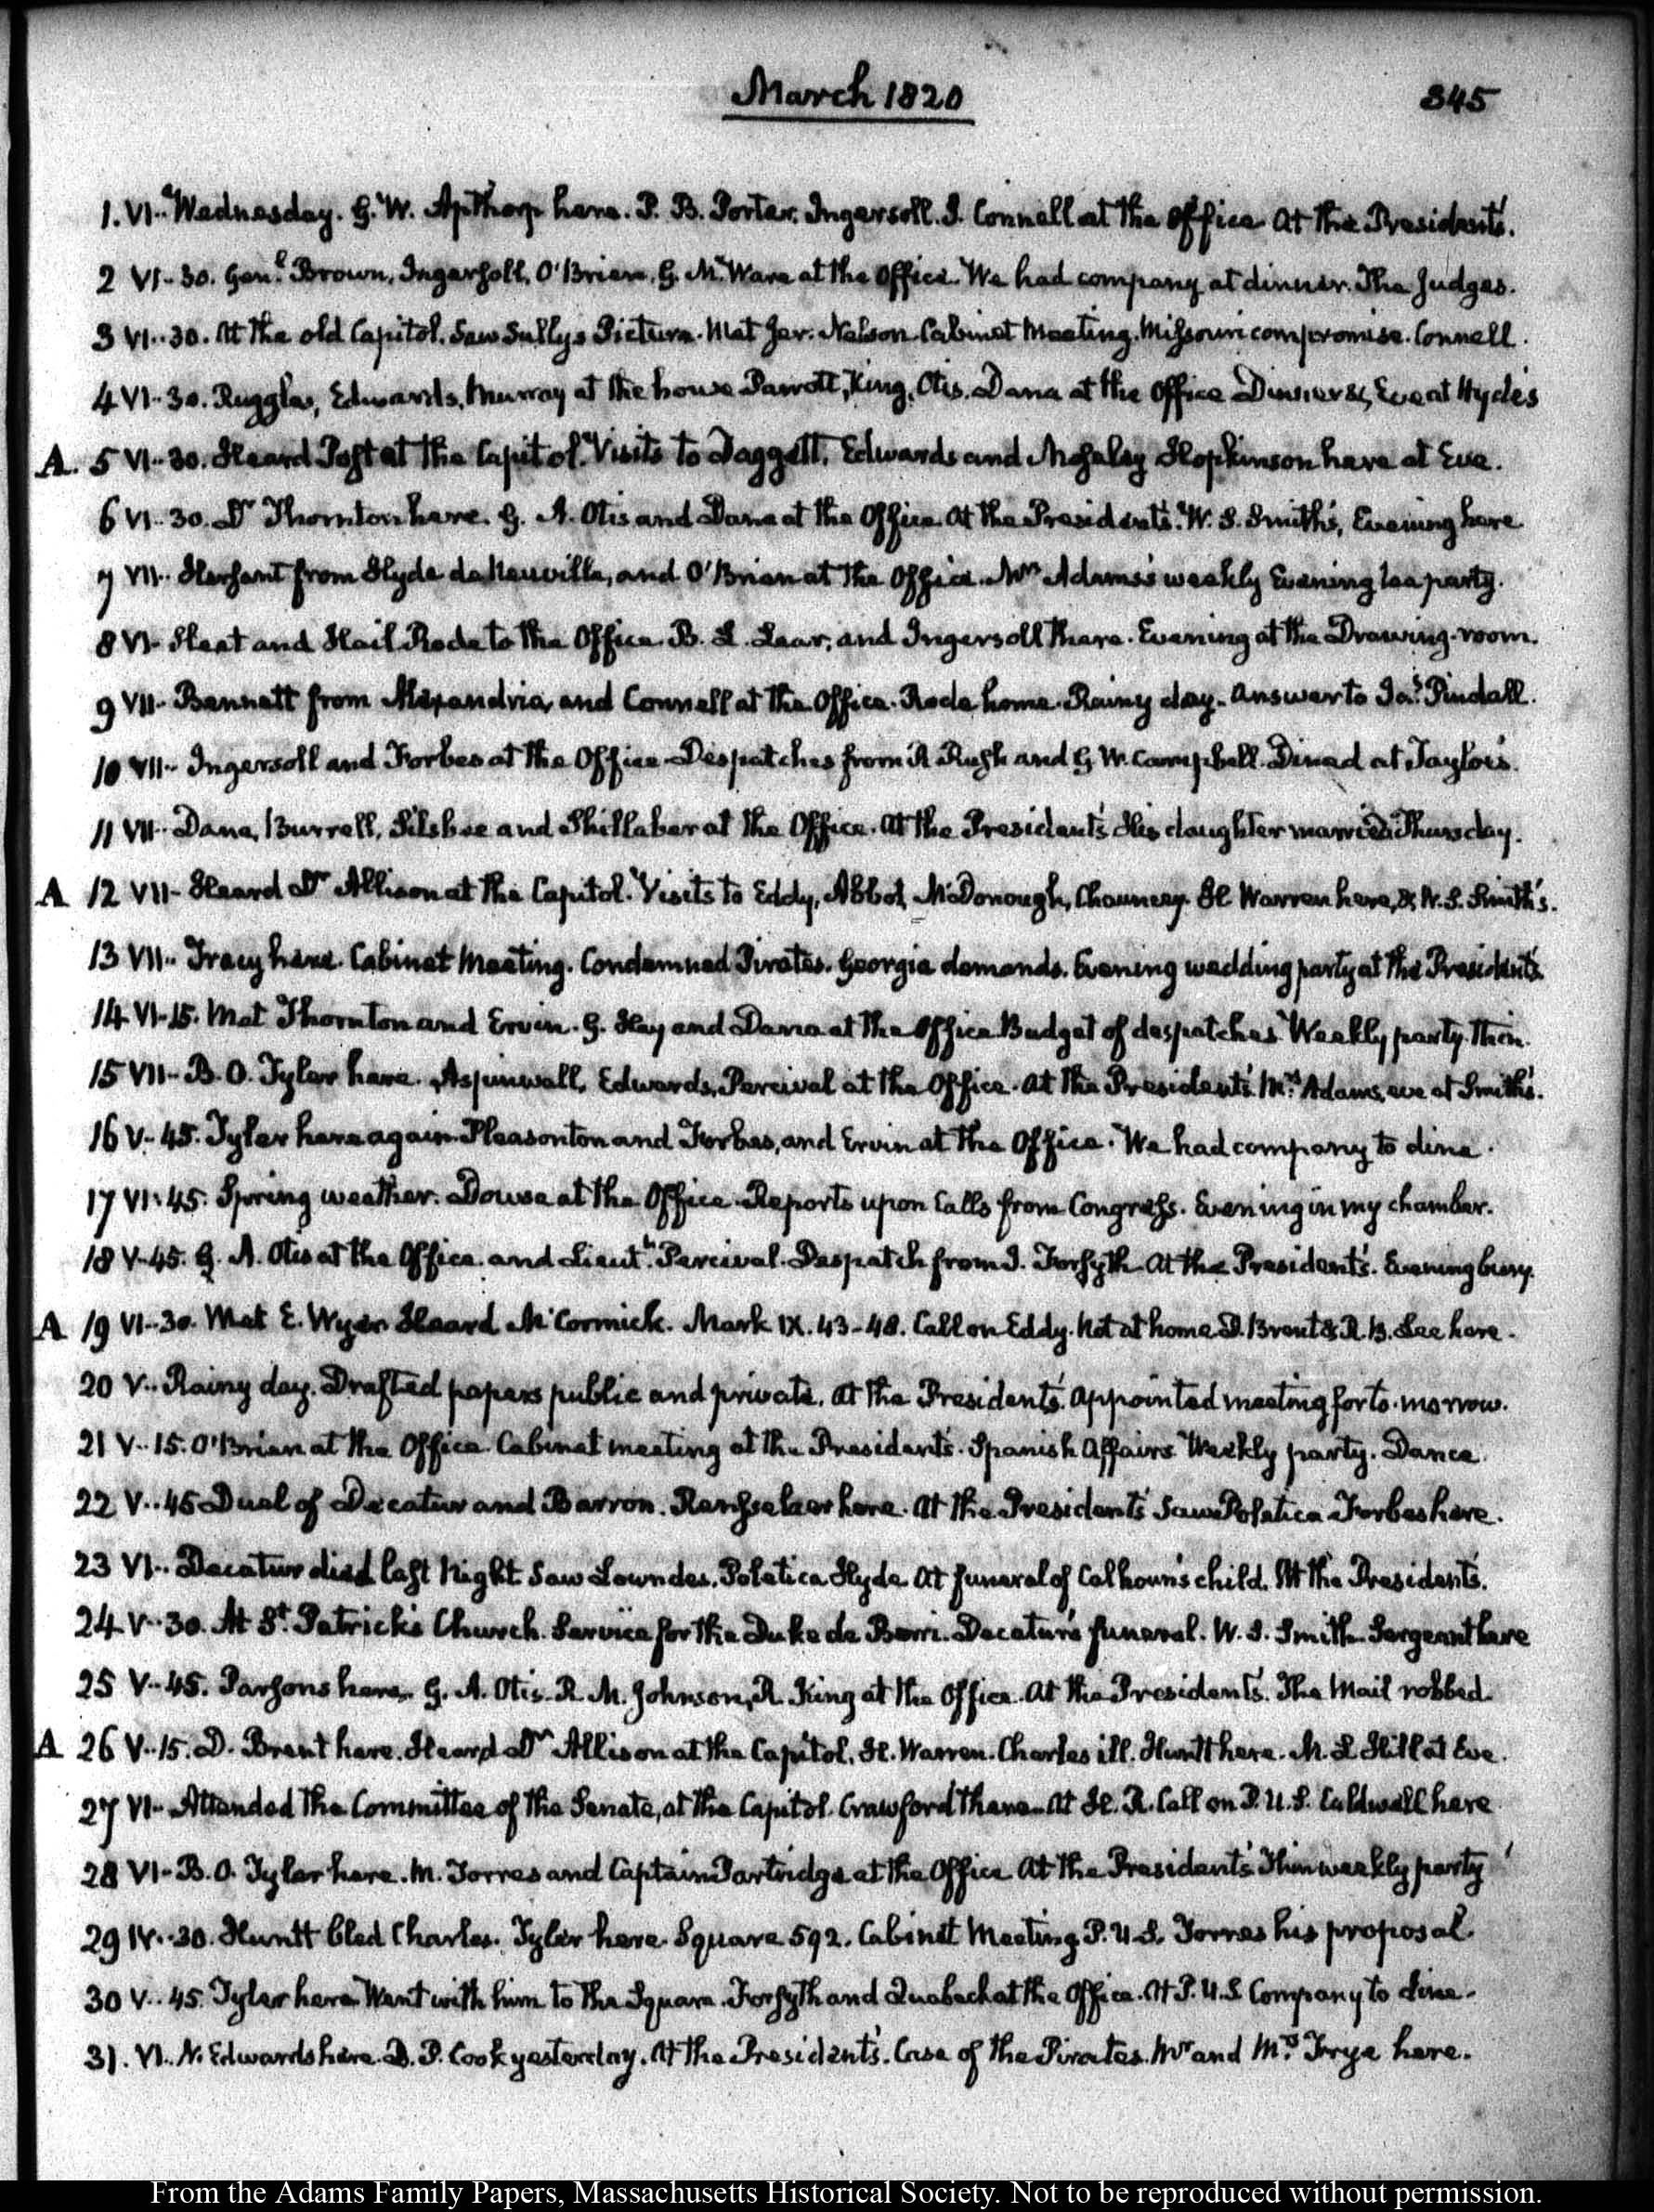 March 1820
345
1. VI. Wednesday. G. W. Apthorp here. P. B. Porter, Ingersoll. J. Connell at the Office At the Presidents'.
2 VI-30. Genl. Brown, Ingersoll, O'Brien, G. M. Ware at the Office. We had company at dinner. The Judges.
3 VI..30. At the old Capitol. Saw Sully's Picture. Met Jer. Nelson. Cabinet Meeting. Missouri compromise. Connell.
4 VI-30. Ruggles, Edwards, Murray at the house Parrott, King, Otis. Dana at the Office Dinner &c, Eve at Hyde's
A. 5 VI..30. Heard Post at the Capitol. Visits to Daggett, Edwards and Moseley Hopkinson here at Eve.
6 VI..30. Dr Thornton here. G. A. Otis and Dana at the Office At the Presidents'. W. S. Smith's, Evening here
7 VII.. Hersant from Hyde de Neuville, and O'Brien at the Office. Mrs Adams's weekly Evening tea party.
8 VI- Sleet and Hail Rode to the Office. B. L. Lear, and Ingersoll there. Evening at the Drawing-room.
9 VII- Bennett from Alexandria, and Connell at the Office. Rode home. Rainy day. Answer to Jas. Pindall.
10 VII- Ingersoll and Forbes at the Office Despatches from R Rush and G W. Campbell. Dined at Tayloe's.
11 VII. Dana, Burrell, Silsbee and Shillaber at the Office. At the Presidents' His daughter married Thursday.
A 12 VII- Heard Dr Allison at the Capitol. Visits to Eddy, Abbot, McDonough, Chauncey. H. Warren here, & W. S. Smith's.
13 VII.. Tracy here. Cabinet Meeting. Condemned Pirates. Georgia demands. Evening wedding party at the Presidents.
14 VI-15. Met Thornton and Ervin. G. Hay and Dana at the Office Budget of despatches Weekly party. Thin.
15 VII- B. O. Tyler here. Aspinwall, Edwards, Percival at the Office. At the Presidents'. Mrs Adams, eve at Smith's.
16 V-45. Tyler here again. Pleasonton and Forbes, and Ervin at the Office. We had company to dine.
17 VI.45. Spring weather. Dowse at the Office. Reports upon Calls from Congress. Evening in my chamber.
18 V-45. G. A. Otis at the Office and Lieutt. Percival. Despatch from J. Forsyth At the Presidents'. Evening busy.
A 19 VI..30. Met E. Wyer Heard McCormick. Mark IX. 43-48. Call on Eddy. Not at home D. Brent & R. B. Lee here.
20 V.. Rainy day. Drafted papers public and private. At the Presidents'. Appointed meeting for to-morrow.
21 V..15. O'Brien at the Office Cabinet meeting at the Presidents'. Spanish Affairs Weekly party. Dance.
22 V..45 Duel of Decatur and Barron. Rensselaer here. At the Presidents' Saw Poletica Forbes here.
23 VI.. Decatur died last Night Saw Lowndes. Poletica Hyde At funeral of Calhoun's child. At the Presidents'.
24 V..30. At St. Patrick's Church. Service for the Duke de Berri. Decatur's funeral. W. S. Smith Sergeant here
25 V..45. Parsons here. G. A. Otis. R. M. Johnson, R. King at the Office. At the Presidents'. The Mail robbed.
A 26 V..15. D. Brent here. Heard Dr Allison at the Capitol, H. Warren. Charles ill. Huntt here. M. L Hill at Eve.
27 VI- Attended the Committee of the Senate, at the Capitol. Crawford there. At H. R. Call on P. U. S. Caldwell here
28 VI- B. O. Tyler here. M. Torres and Captain Partridge at the Office At the Presidents' Thin weekly party
29 IV..30. Huntt bled Charles. Tyler here Square 592. Cabinet Meeting P. U. S. Torres his proposal.
30 V..45. Tyler here Went with him to the Square. Forsyth and at the Office. At P. U. S. Company to dine.
31. VI. N. Edwards here. D. P. Cook yesterday. At the Presidents'. Case of the Pirates. Mr and Mrs Frye here.
From the Adams Family Papers, Massachusetts Historical Society. Not to be reproduced without permission.